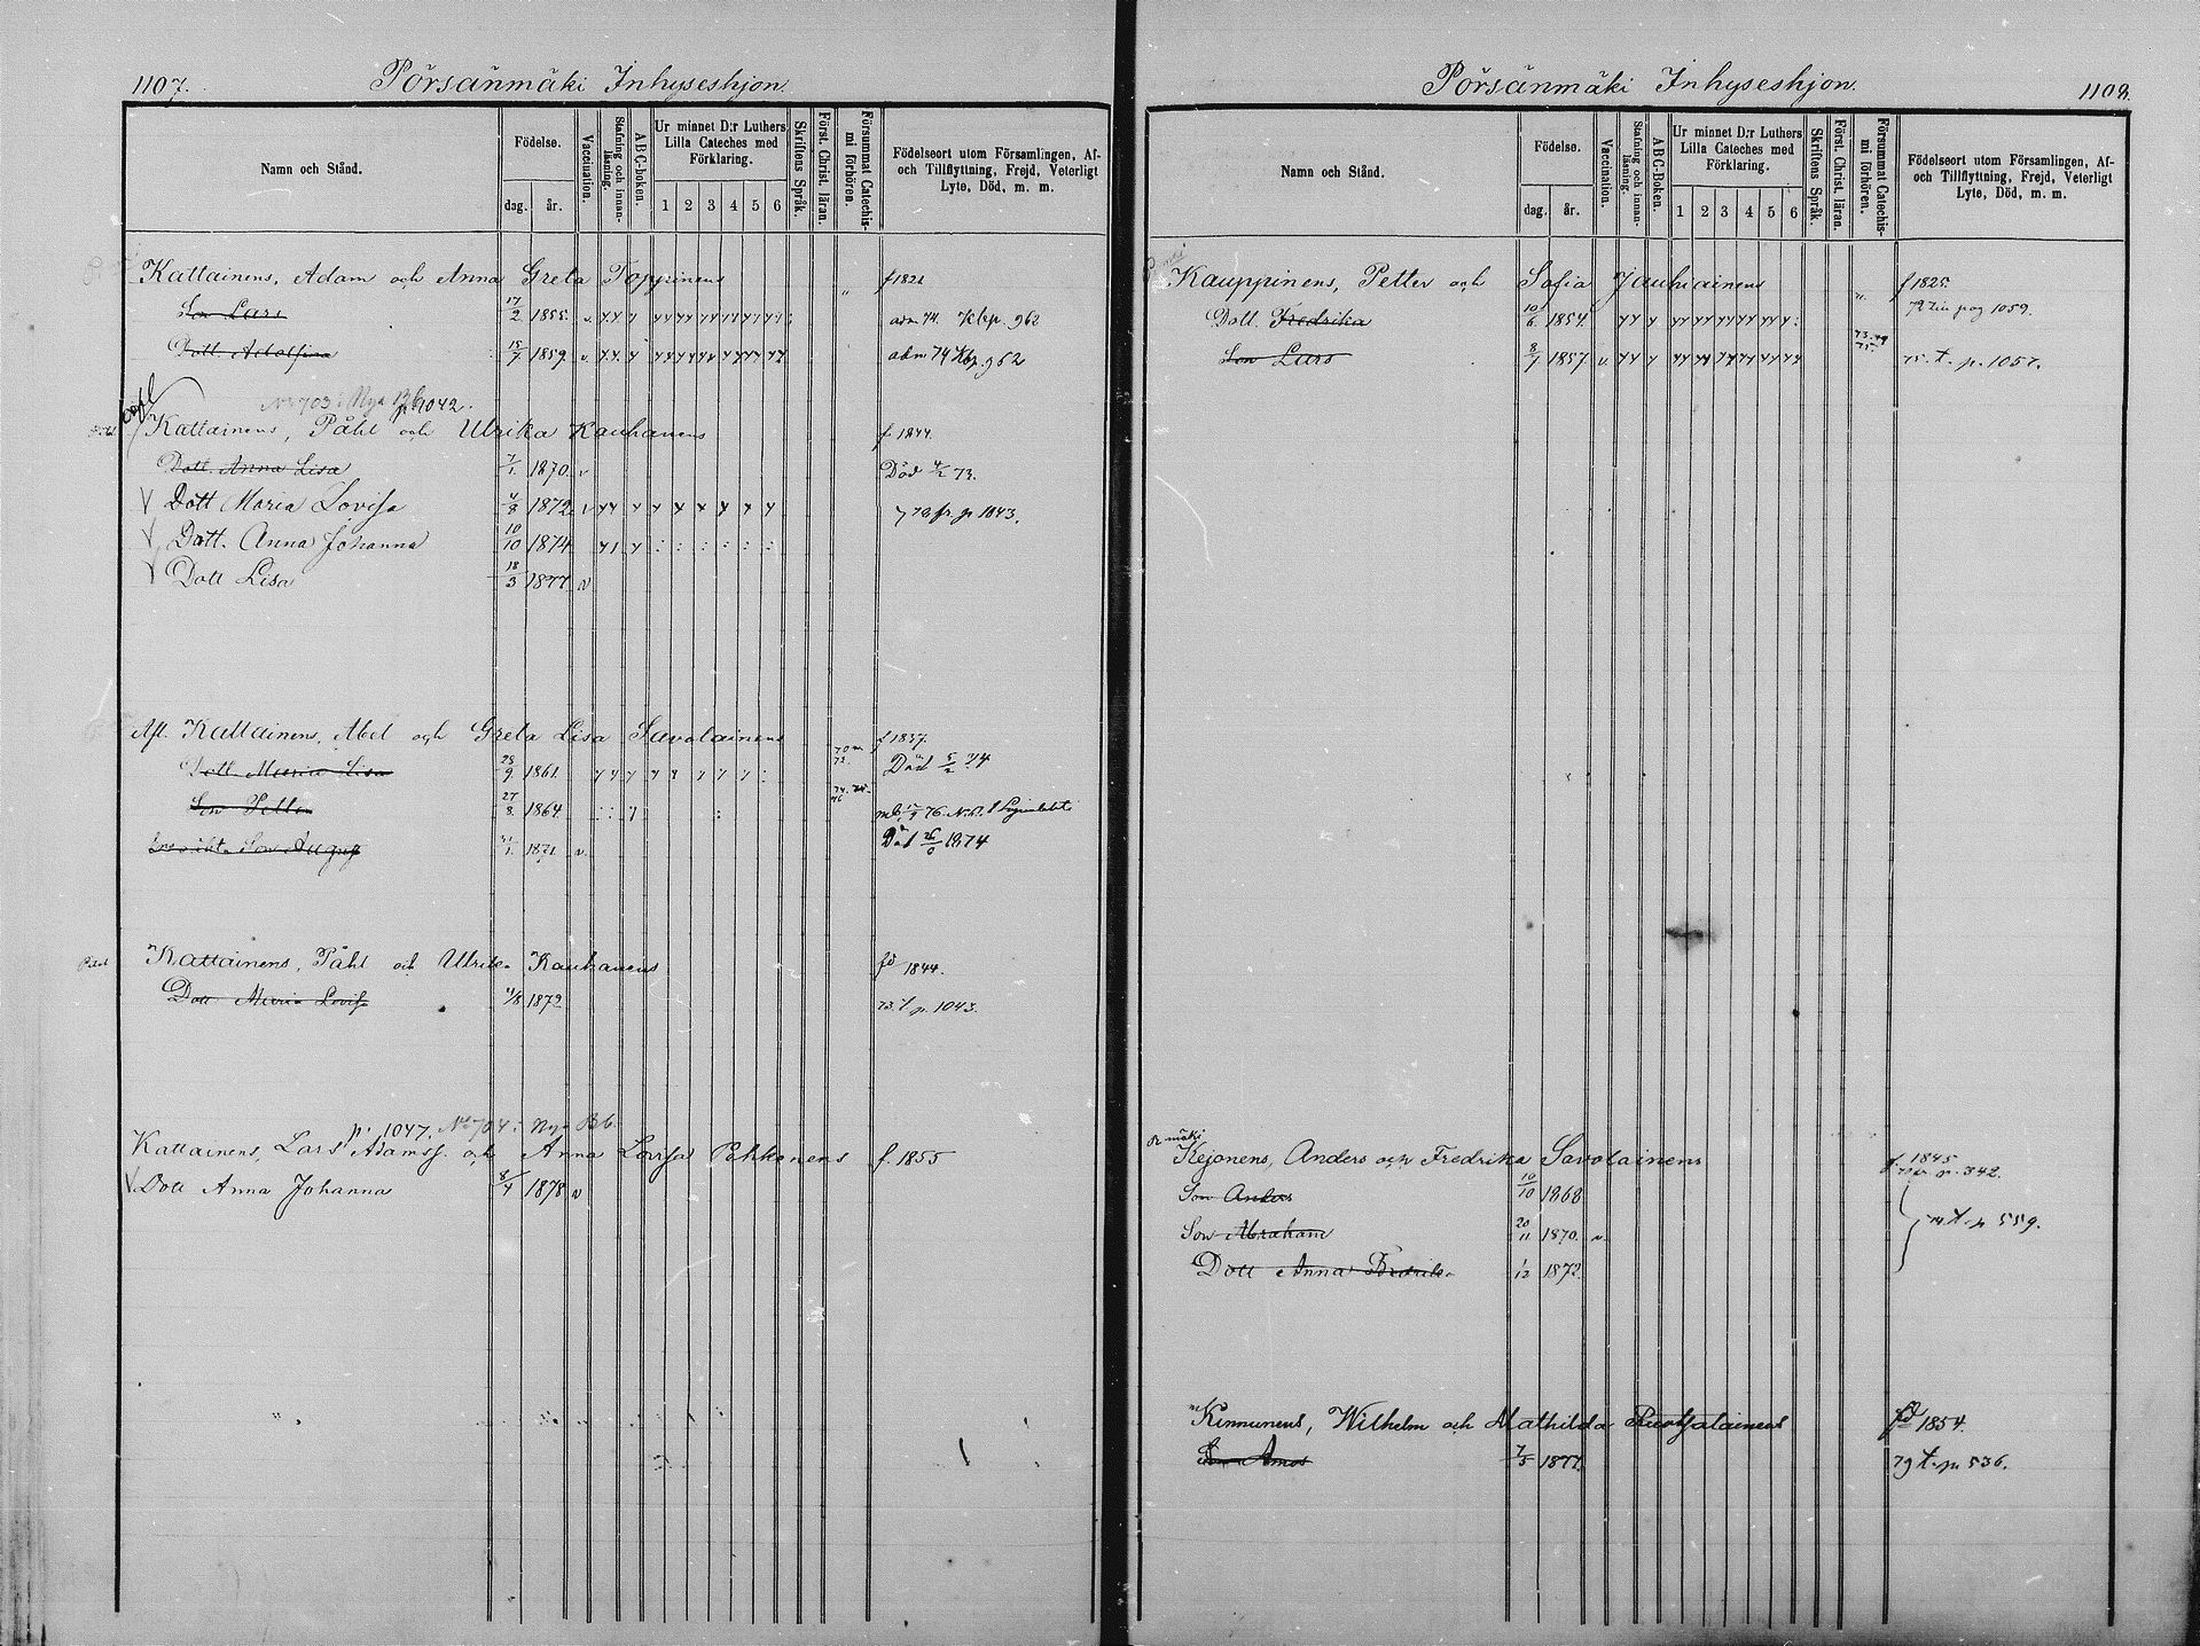 1107. Pörsänmäki Inhyseshjon.
Namn och Stånd.
Födelse.
dag. år.
Vaccination.
Stafning och innan-
läsning.
ABC-boken.
Ur minnet D:r Luthers
Lilla Cateches med
Förklaring.
1 2 3 4 5 6
Skriftens Språk.
Först. Christ. läran.
Försummat Catechis-
mi förhören.
Födelseort utom Församlingen, Af-
och Tillflyttning, Frejd, Veterligt
Lyte, Död, m. m.
Kattainens, Adam och Anna Greta Toppinens f 1821
Son Lars 17/2 1855. v.
adm 74. Kbp. 962
Dott. Adolfina 15/7 1859 v.
adm 74 Kbp. 962
No 703: Nya Bb p 1042.
Kattainens, Påhl och Ulrika Kauhanens f 1844.
Dott. Anna Lisa 7/1 1870. v Död 4/2 73.
Dott Maria Lovisa 4/8 1872 v
76 fr. p 1043.
Dott. Anna Johanna 10/10 1874
Dott Lisa 18/3 1877 v
Aft. Kattainens, Abel och Greta Lisa Savolainens f 1837.
Dott. Maria Lisa 28/9 1861. Död 5/2 74
Son Petter 27/8 1864.
Son August 1871 v. Död 1874
Kattainens, Påhl och Ulrika Kauhanens fd 1844.
Dott Maria Lovisa 4/8 1872 73. t p. 1043.
p. 1047. No 704: Nya Bb.
Kattainens, Lars Adamss. och Anna Lovisa Pekkonens f. 1855
Dott Anna Johanna 8/4 1878 v
Pörsänmäki Inhyseshjon. 1108.
Namn och Stånd.
Födelse.
dag. år.
Vaccination.
Stafning och innan-
läsning.
ABC-Boken.
Ur minnet D:r Luthers
Lilla Cateches med
Förklaring.
1 2 3 4 5 6
Skriftens Språk.
Först. Christ. läran.
Försummat Catechis-
mi förhören.
Födelseort utom Församlingen, Af-
och Tillflyttning, Frejd, Veterligt
Lyte, Död, m. m.
Kauppinens, Petter och Sofia Jauhiainens f 1825.
Dott. Fredrika 10/6 1854. pag 1059.
Son Lars 8/1 1857 v. 75. t. p. 1057.
Kejonens, Anders och Fredrika Savolainens f. 1845
p. 342.
Son Anders 10/10 1868
Son Abraham 20/11 1870. v. 74 t. p 559.
Dott Anna Fredrika 1/12 1872
Kinnunens, Wilhelm och Mathilda Ruotsalainens fd 1854.
Son Amos 7/5 1877. 79 t. p. 536.